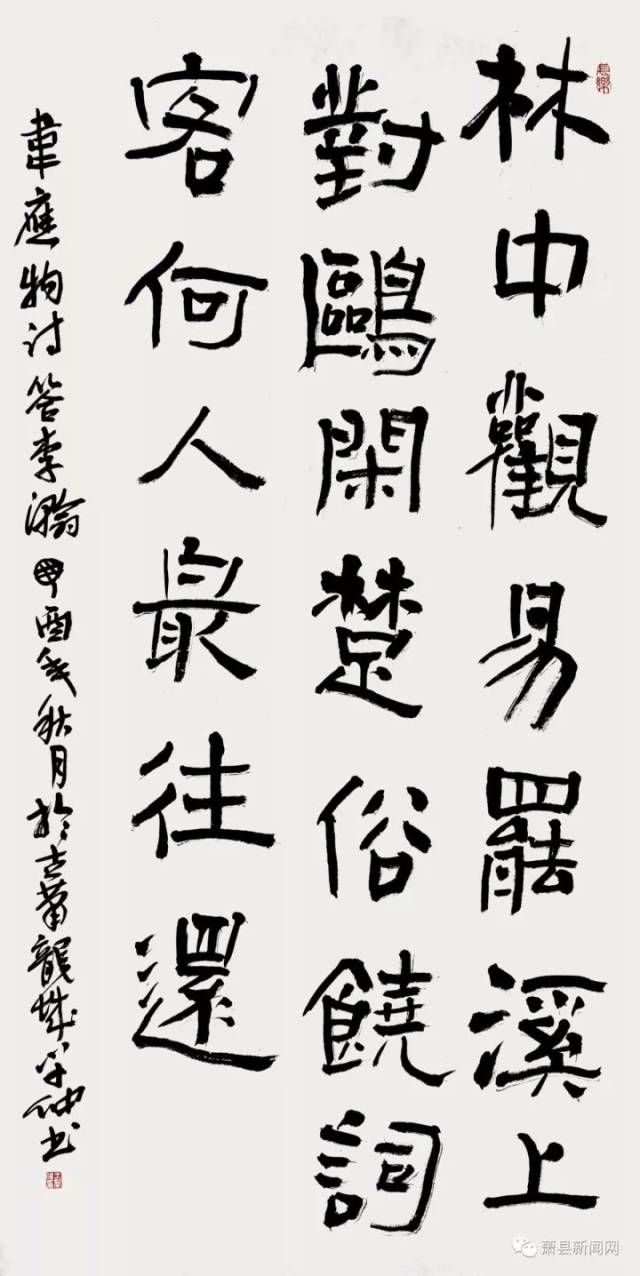 林中觀易罷溪上
對鷗閑楚俗饒詞
客何人最往還
韋應物詩答李瀚 酉年秋月於古蕭龍城 仲书
萧县新闻网